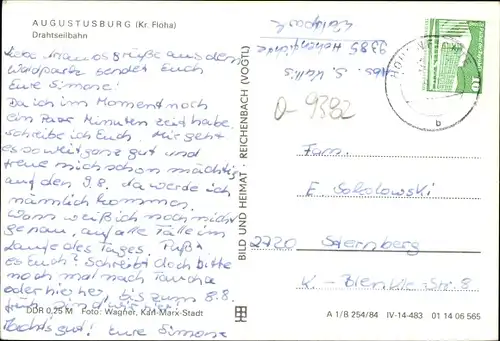 AUGUSTUSBURG (Kr. Flöha)
Drahtseilbahn
Liebe Grüße aus dem
Waldpark sendet Euch
Eure Simone!
Da ich im Moment noch
ein Paar Minuten zeit habe,
schreibe ich Euch. Mir geht
es soweit ganz gut und
freue mich schon mächtig
auf den 9.8. da werde ich
nämlich kommen.
Wann weiß ich noch nicht
genau, auf alle Fälle im
Laufe des Tages. Paßt
es Euch? Schreibt doch bitte
noch mal nach Taucha
oder hieher, bis zum 8.8.
früh sind wir hier.
Machts gut! Eure Simone
DDR 0,25 M Foto: Wagner, Karl-Marx-Stadt
BILD UND HEIMAT REICHENBACH (VOGTL)
Abs. S.
9385
Waldpark
10
b
D-9392
Fam.
E. Sokolowski
2720 Sternberg
K.-Str. 8
A 1/B 254/84 IV-14-483 01 14 06 565